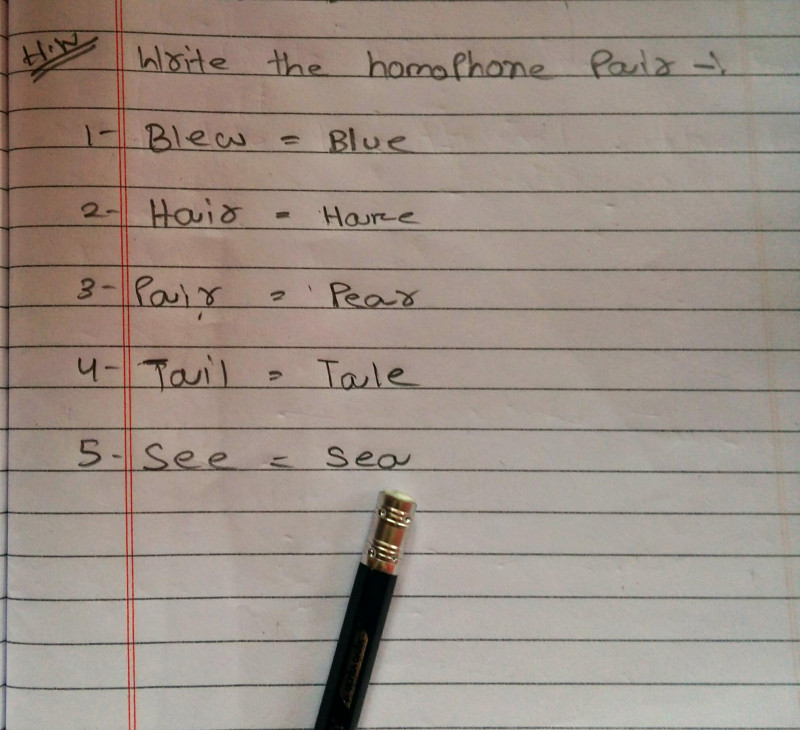 H.W Write the homophone Pair -:
1- Blew = Blue
2- Hair = Hare
3- Pair = Pear
4- Tail = Tale
5- See = Sea